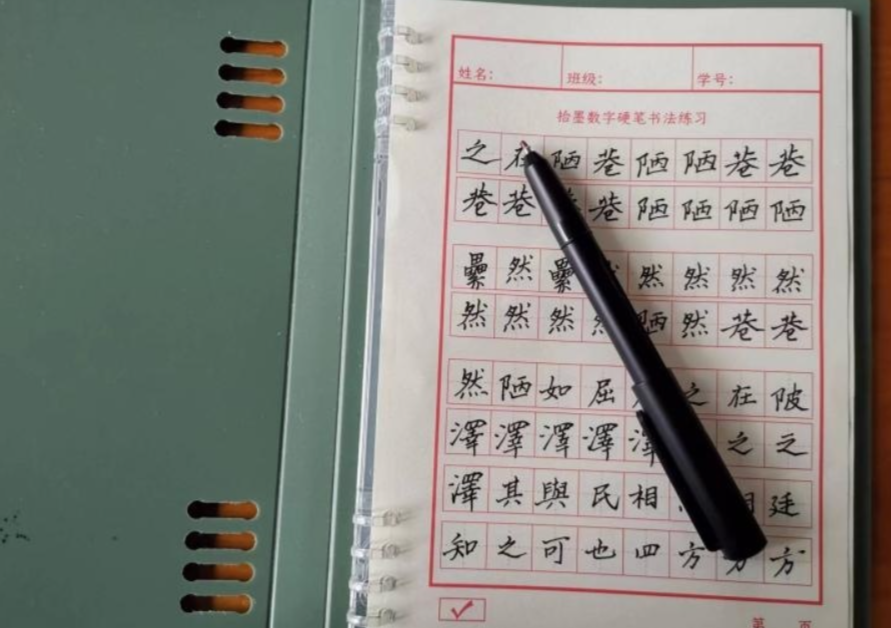 姓名: 班级: 学号:
拾墨数字硬笔书法练习
之在陋巷陋陋巷巷
巷巷巷巷陋陋陋陋
纍然纍然然然然
然然然陋然巷巷
然陋如屈之在陂
澤澤澤澤澤之之
澤其與民相廷
知之可也四方方方
第 页